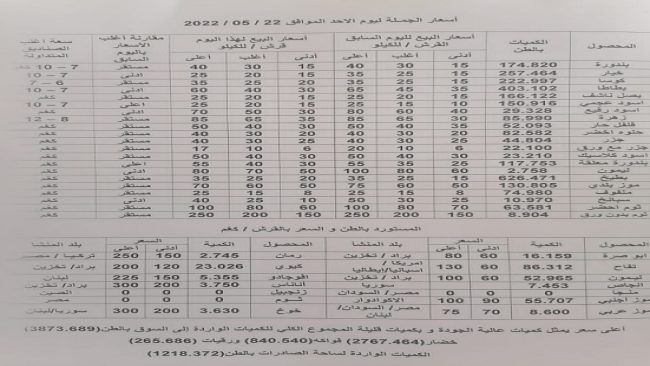 أسعار الجملة ليوم الاحد الموافق 22 / 05 / 2022
المحصول الكميات بالطن أسعار البيع لليوم السابق القرش / للكيلو أسعار البيع لهذا اليوم قرش / للكيلو مقارنة أغلب الأسعار باليوم السابق سعة أغلب الصناديق المتداولة
أدنى أغلب أعلى أدنى أغلب أعلى
بندورة 174.820 15 30 40 15 30 40 مستقر 7 – 10
خيار 257.464 15 25 35 15 20 25 أدنى 7 – 10
كوسا 222.997 15 25 35 20 25 35 مستقر 6 – 7
بطاطا 403.102 35 45 65 30 40 60 أدنى 7 – 10
بصل ناشف 166.122 15 20 25 15 20 25 مستقر كغم
اسود عجمي 150.916 10 15 20 15 20 25 أعلى 7 – 10
اسود رفيع 29.328 40 60 80 30 50 70 أدنى كغم
زهرة 85.990 30 35 65 35 65 85 مستقر 8 – 12
فلفل حار 52.093 35 40 50 30 40 50 مستقر كغم
حلوه اخضر 82.582 20 30 40 20 30 40 مستقر كغم
جزر 44.804 25 30 40 25 30 40 مستقر كغم
جزر مع ورق 22.100 6 10 20 6 10 17 مستقر كغم
اسود كلاسيك 23.210 30 40 50 30 40 50 مستقر كغم
بندورة معلقة 117.753 25 30 40 30 40 55 أعلى كغم
ليمون 2.758 60 80 100 50 70 80 أدنى كغم
بطيخ 626.471 15 25 35 20 25 35 مستقر كغم
موز بلدي 130.805 50 60 75 50 60 70 مستقر كغم
ملفوف 74.980 8 15 25 8 15 25 مستقر كغم
سبانخ 10.970 30 40 50 30 40 50 مستقر كغم
ثوم اخضر 63.581 70 80 100 60 80 100 مستقر كغم
ثوم بدون ورق 8.904 150 200 250 150 200 250 مستقر كغم
المستورد بالطن و السعر بالقرش / كغم
المحصول الكمية السعر بلد المنشأ المحصول الكمية السعر بلد المنشأ
أدنى أعلى أدنى أعلى
ابو صرة 16.159 60 80 براد / تخزين رمان 2.745 150 250 تركيا / مصر
تفاح 86.312 60 130 امريكا / اسبانيا/إيطاليا كيوي 23.026 120 200 براد/ تخزين
ليمون 52.965 60 100 براد / تخزين افوجادو 5.355 225 150 لبنان
اجاص 7.453 سوريا أناناس 3.750 200 300 براد/ تخزين
منجا 0 0 0 مصر/السودان زنجبيل 0 0 0 الصين
موز اجنبي 55.707 90 100 الاكوادور ثوم 0 0 0 مصر
موز عربي 8.600 70 75 مصر/ السودان/ لبنان خوخ 3.630 200 300 سوريا/لبنان
أعلى سعر يمثل كميات عالية الجودة و بكميات قليلة المجموع الكلي للكميات الواردة إلى السوق بالطن(3873.689)
خضار(2767.464) فواكه(840.540) ورقيات (265.686)
الكميات الواردة لساحة الصادرات بالطن(1218.372)